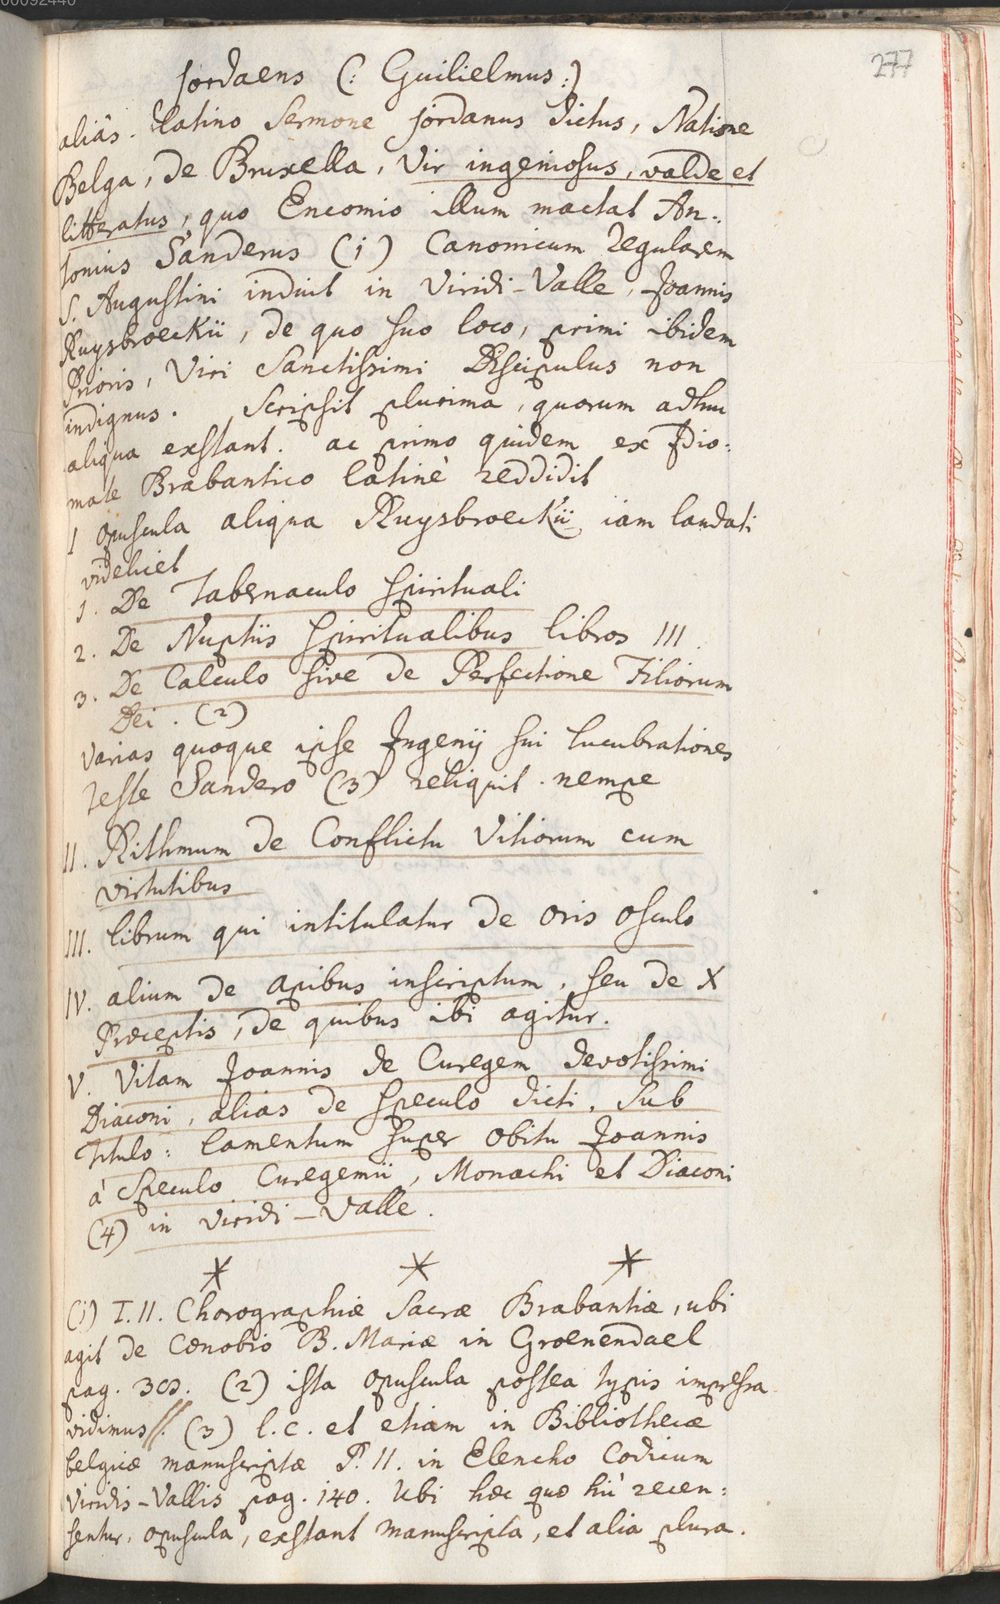 00092440
277
Jordaens (: Guilielmus :)
aliàs. Latino Sermone Jordanus dictus, Natione
Belga, de Bruxella, Vir ingeniosus, valde et
litteratus, quo Encomio illum mactat An-:
tonius Sanderus (1) Canonicum regularem
S. Augustini induit in Viridi-Valle, Joannis
Ruysbroeckii, de quo suo loco, primi ibidem
Prioris, Viri Sanctissimi Discipulus non
indignus. Scripsit plurima, quorum adhuc
aliqua exstant. ac primo quidem ex Idio:
mate Brabantico latinè reddidit
I opuscula aliqua Ruysbroeckii iam laudati
videlicet
1. De Tabernaculo Spirituali
2. De Nuptiis Spiritualibus libros III
3. De Calculo sive de Perfectione Filiorum
Dei. (2)
Varias quoque ipse Ingenij sui lucubrationes
teste Sandero (3) reliquit. nempe
II. Rithmum de Conflictu Vitiorum cum
virtutibus
III. librum qui intitulatur de Oris Osculo
IV. alium de apibus inscriptum, seu de X
Præceptis, de quibus ibi agitur.
V. Vitam Joannis de Curegem devotissimi
Diaconi, alias de Speculo dicti. Sub
Titulo: lamentum super obitu Joannis
à Speculo Curegemii, Monachi et Diaconi
(4) in Viridi-Valle.
(1) T. II. Chorographiæ Sacræ Brabantiæ, ubi
agit de Cœnobio B. Mariæ in Groenendael
pag. (2) ista opuscula postea typis impressa
vidimus. (3) l. c. et etiam in Bibliothecæ
belgicæ manuscriptæ P. II. in Elencho Codicum
Viridis-Vallis pag. 140. Ubi hæc quæ hic recen:
sentur, opuscula, exstant manuscripta, et alia plura.